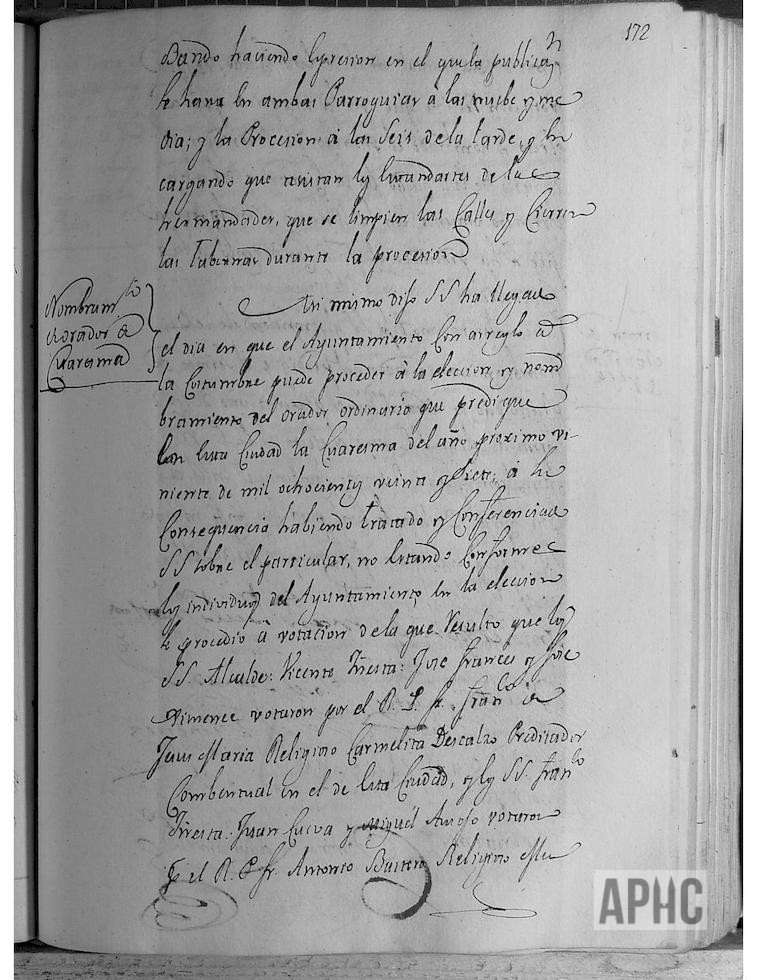 172
Bando haciendo Espresion en el que la publicaⁿ
se hara en ambas Parroquias á las nuebe y me
dia; y la Procesion á las Seis de la tarde, y En
cargando que asistan los Estandartes de las
hermandades, que se limpien las Calles y Cierren
las Tabernas durante la procesion
Nombramto
de orador de
Cuaresma
Asi mismo dijo SS ha llegado
el dia en que el Ayuntamiento Con arreglo á
la Costumbre puede proceder á la eleccion y nom
bramiento del orador ordinario que predique
en Esta Ciudad la Cuaresma del año proximo vi-
niente de mil ochocientos veinte y siete; á su
Consequencia habiendo tratado y Conferenciado
SS sobre el particular, no Estando Conformes
los individuos del Ayuntamiento en la eleccion
se procedio á votacion de la que Resulto que los
SS. Alcalde: Vicente Iñesta: Jose Frances y Jose
Ximenez votaron por el R. P. Fr. Franco de
Jesus Maria Religioso Carmelita Descalzo Predicador
Combentual en el de Esta Ciudad, y los SS. Franco
Iñesta: Juan Cueva y Miguel votaron
P. el R. P. Fr. Antonio Religioso
APHC